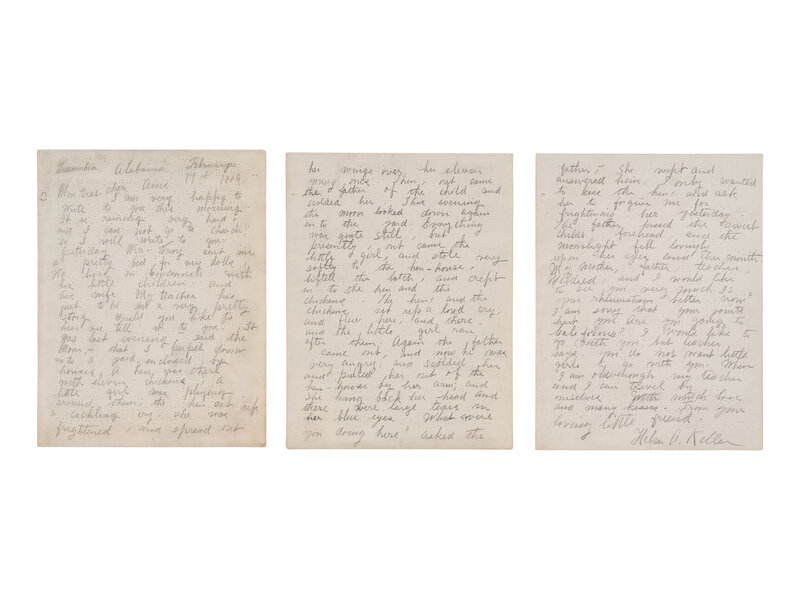 Tuscumbia Alabama Februaryy
Mon tres cher Ami
I am very happy to
write to you this morning
It is raining very hard
and I can not go to church
so I will write to you.
Yesterday Mr. sent me
a pretty for my dolls.
He lives in Cincinnati with
his little children and
his wife My teacher has
just told me a very pretty
story. Would you like to
hear me tell it to you? It
was last evening said the
Moon,— that I peeped down
into a yard inclosed by
houses, A hen was there
with eleven chickens; A
little girl was playing
around them; the hen set up
a cackling cry, she was
frightened and spread out
her wings over her eleven
young ones. Then, out came
the father of the child and
scolded her. This evening
the moon looked down again
in to the yard Everything
was quite still, but
presently, out came the
little girl, and stole very
softly to the hen-house,
lifted the latch, and crept
in to the hen and the
chickens The hen and the
chickens set up a loud cry,
and flew here, and there,
and the little girl ran
after them. Again the father
came out, and now he was
very angry, and scolded her
and pulled her out of the
hen-house by her arm, and
she hung back her head and
there were large tears in
her blue eyes. What were
you doing here? asked the
father? She and
answered him, I only wanted
to kiss the hen and ask
her to forgive me for
frightening her yesterday.
The father kissed the sweet
childs forehead, and the
moonlight fell lovingly
upon her eyes and the mouth
My Mother, father, teacher,
Mildred, and I would like
to see you very much Is
your rheumatism better now?
I am sorry that your
hurt you Are you going to
I would like to
go with you, but teacher
says you do not want little
girls to go with you. When
I am old enough, my teacher
and I can travel by
ourselves With much love
and many kisses. From your
loving little friend
Helen A. Keller